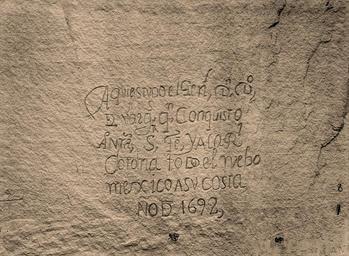 Aqui estubo el Genl, Dn. Do,
De Vargas, qn. Conquisto
a Nra, S. Fe, Y a la Rl
Corona todo el nuebo
mexico A SV costa
AÑO D. 1692,